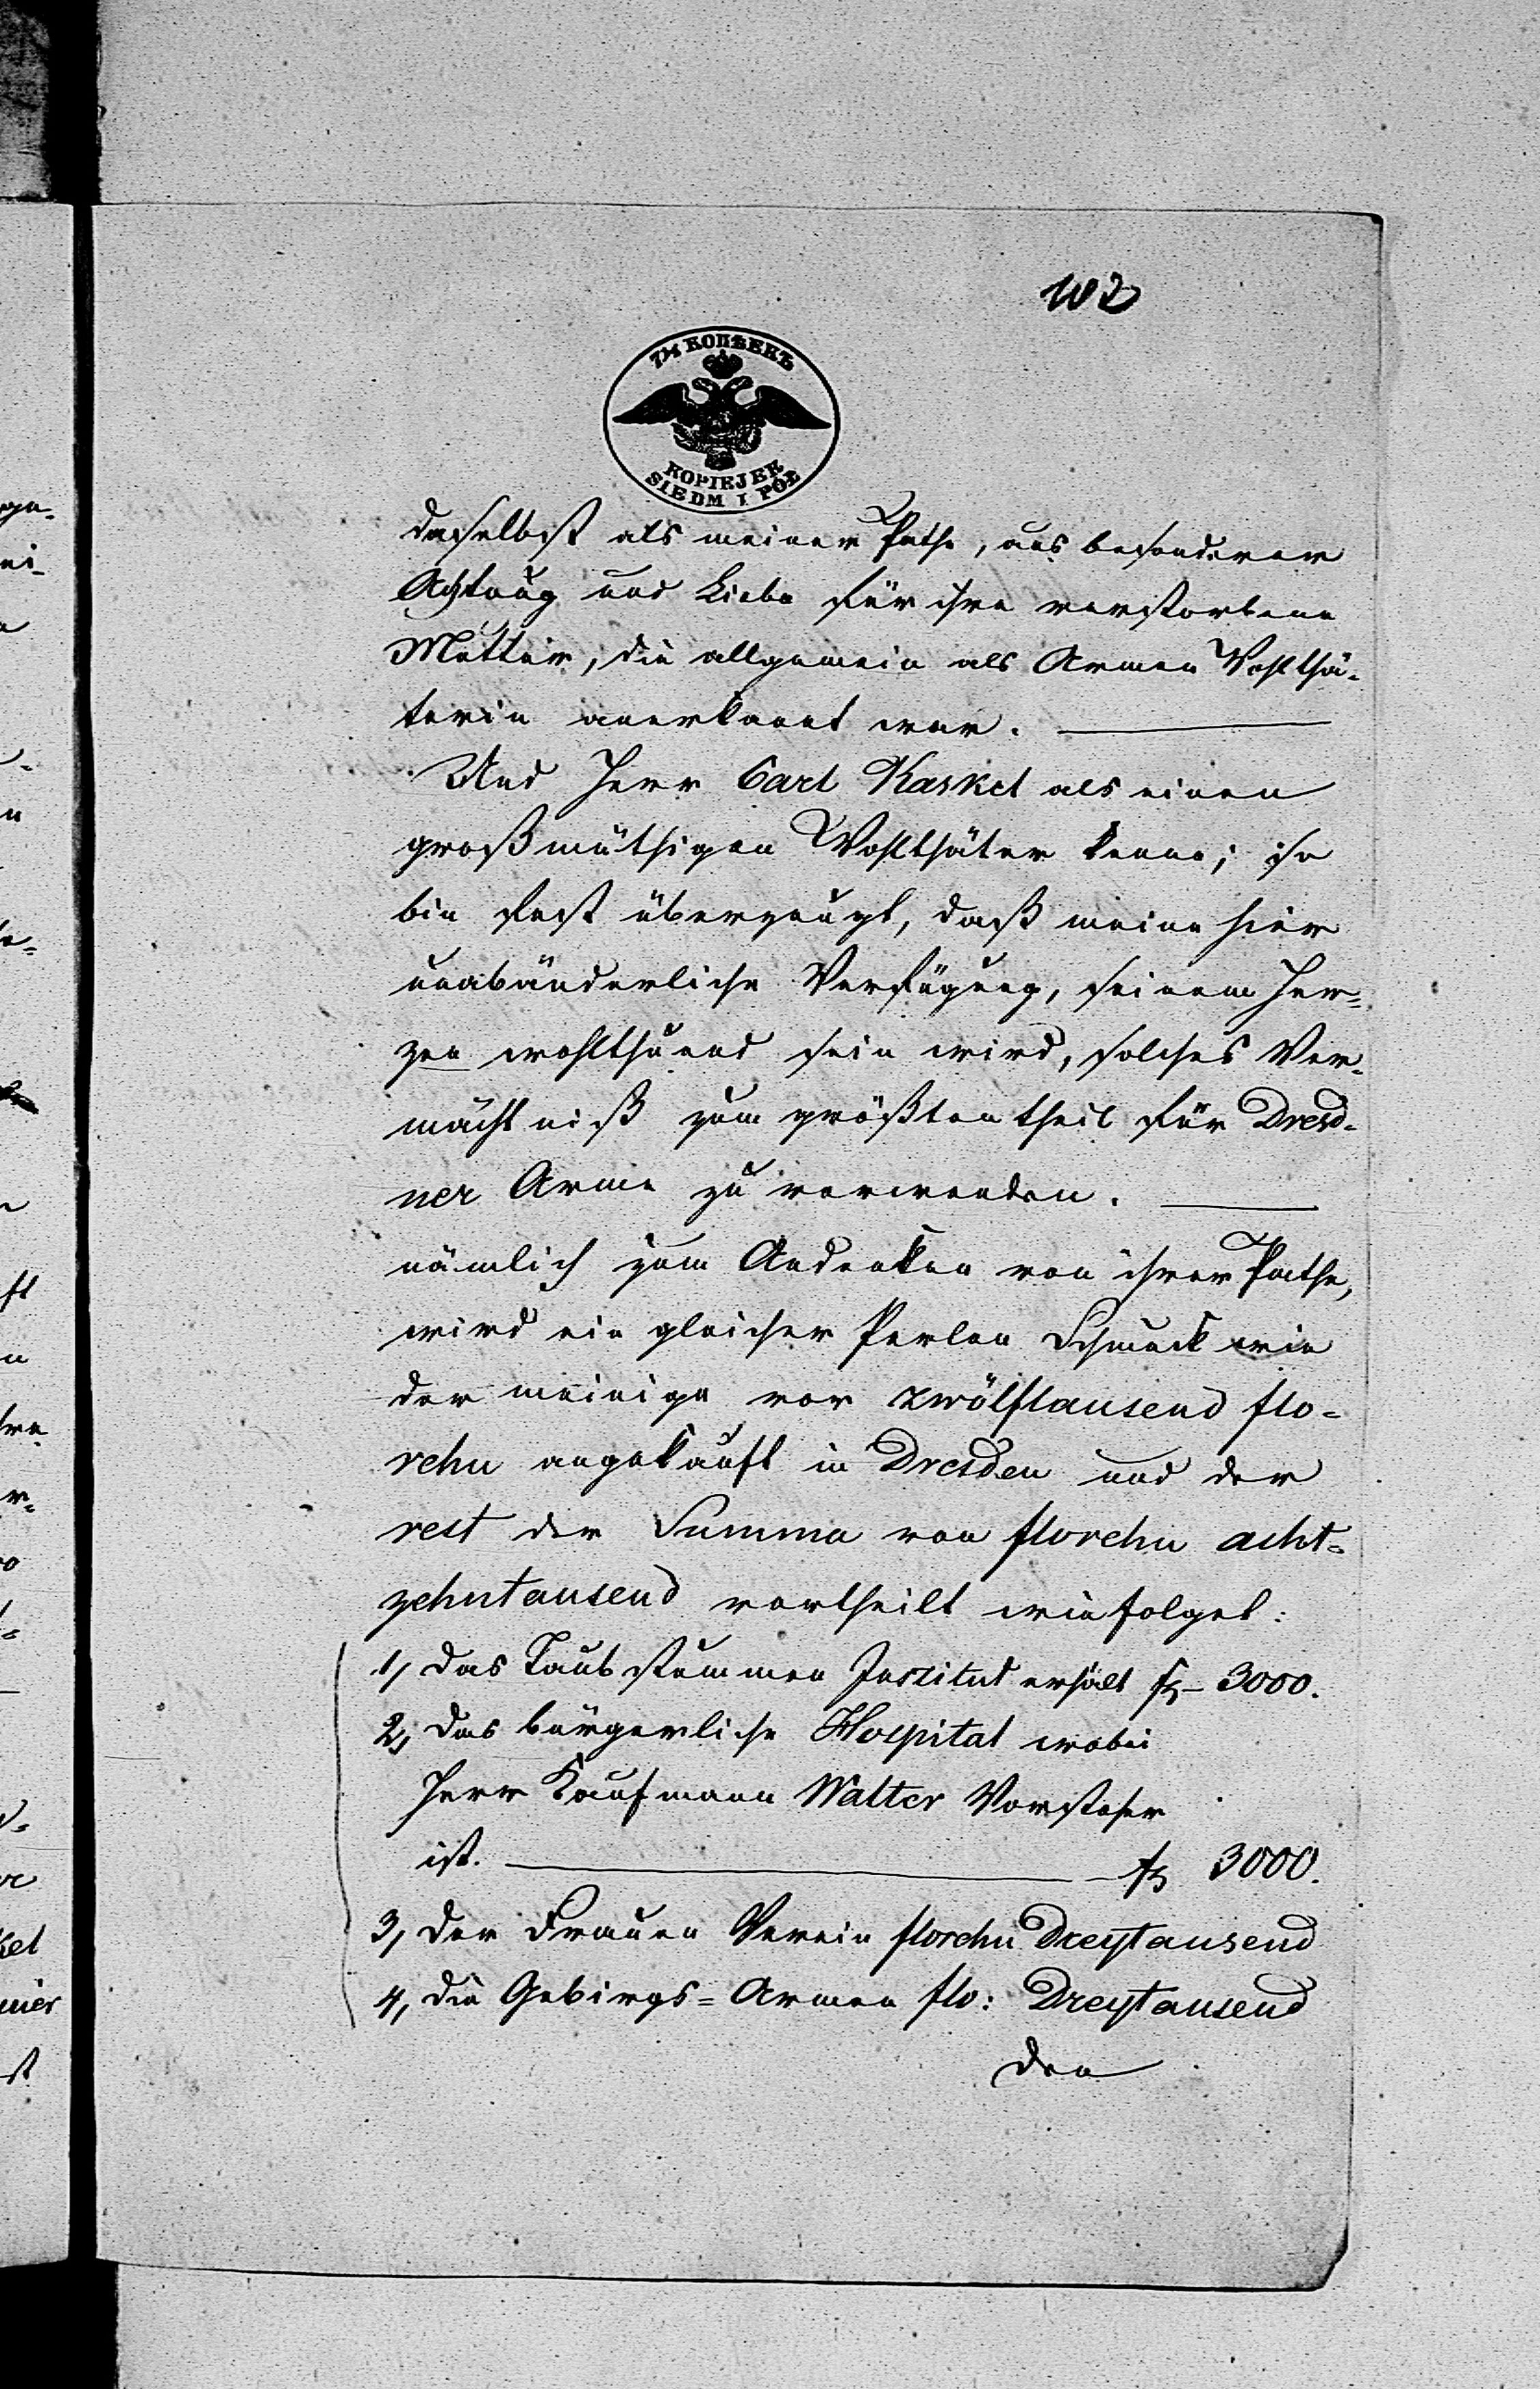 102
7½ КОПѢЕКЪ
KOPIEJEK
SIEDM I PÓŁ
daselbst als meiner Pathe, aus besonderer
Achtung und Liebe für ihre verstorbene
Mutter, die allgemein als Armen Wohlthä-
terin anerkannt war.
Und Herr Carl Kaskel als einen
großmüthigen Wohlthäter kenne; so
bin fest überzeugt, daß meine hier
unabänderliche Verfügung, seinem Her-
zen wohlthuend sein wird, solches Ver-
mächtniß zum größten theil für Dresd-
ner Arme zu verwenden.
nämlich zum Andenken von ihrer Pathe,
wird ein gleicher Perlen Schmuck wie
der meinige vor zwölftausend flo-
rehn angekauft in Dresden und der
rest der Summa von florehn acht-
zehntausend vertheilt wie folget:
1, das Taubstummen Institut erhält f – 3000.
2, das bürgerliche Hospital wobei
Herr Kaufmann Walter Vorsteher
ist. f 3000.
3, der Frauen Verein florehn Dreytausend
4, die Gebirgs-Armen flo: Dreytausend
den